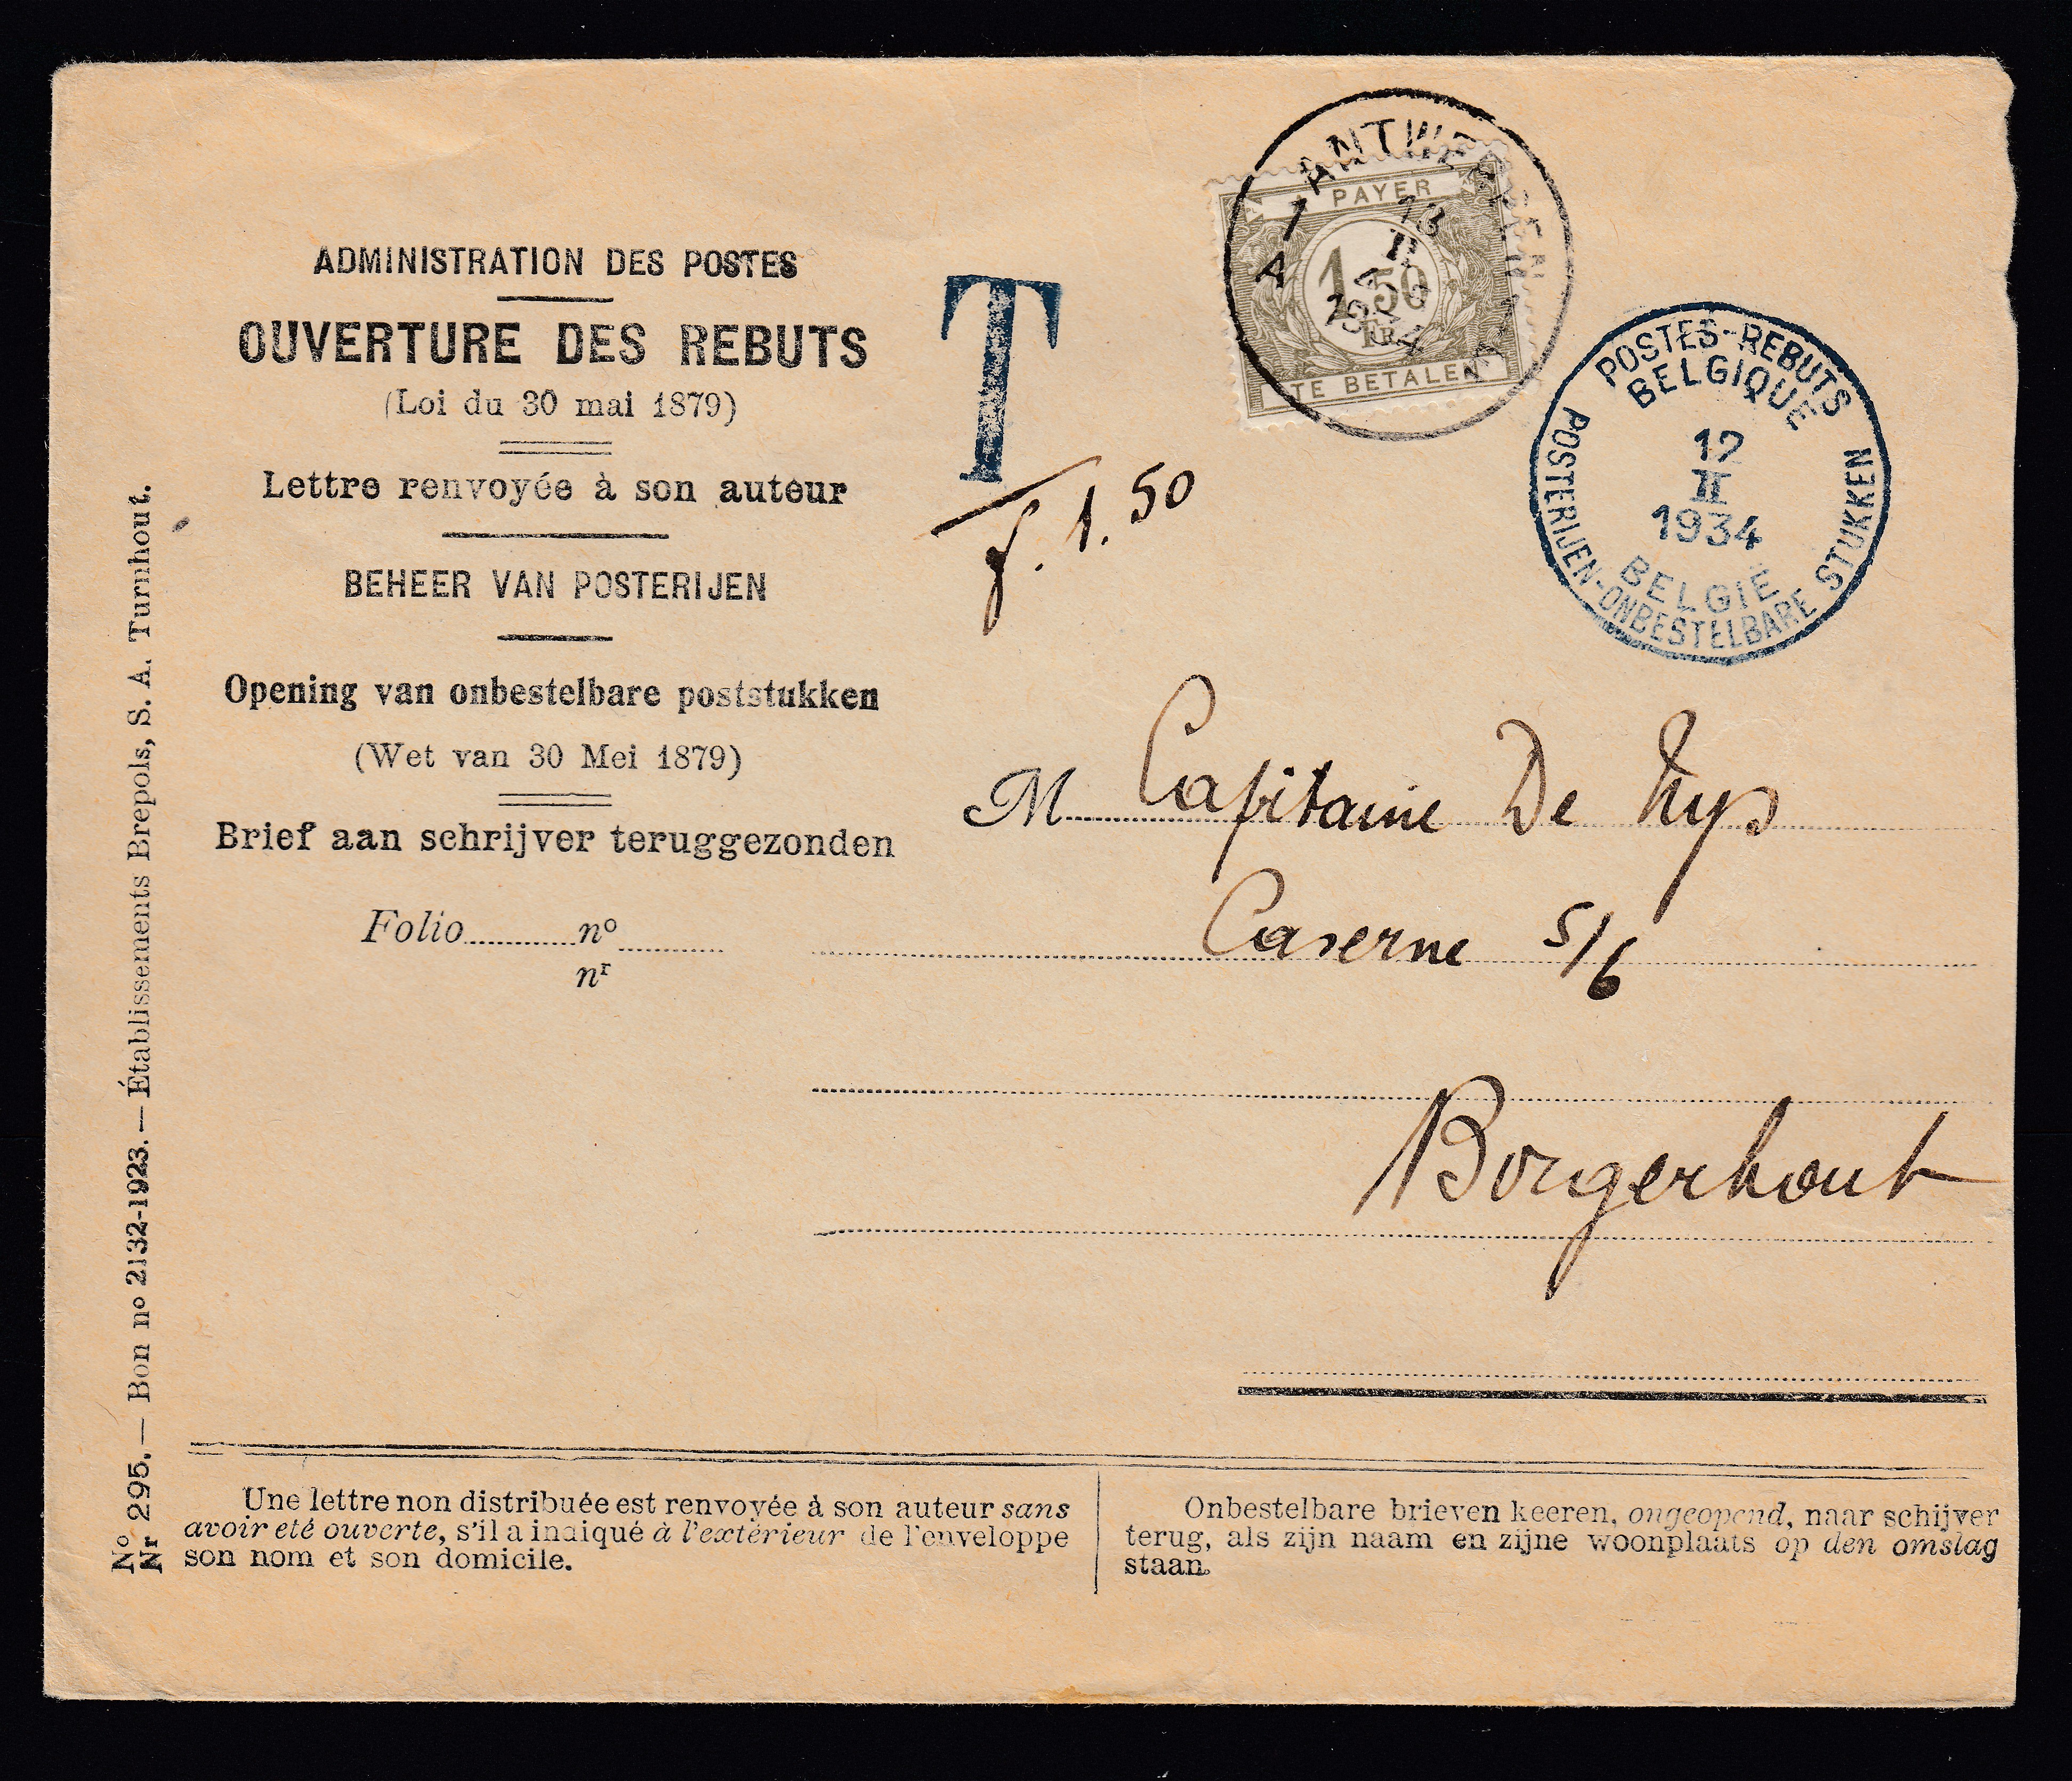 ADMINISTRATION DES POSTES
OUVERTURE DES REBUTS
(Loi du 30 mai 1879)
Lettre renvoyée à son auteur
BEHEER VAN POSTERIJEN
Opening van onbestelbare poststukken
(Wet van 30 Mei 1879)
Brief aan schrijver teruggezonden
Folio nº
nr
T
f. 1.50
ANTWERPEN
1 A
1 A
II
1934
PAYER
1 50
FR
TE BETALEN
POSTES-REBUTS
BELGIQUE
12
II
1934
BELGIË
POSTERIJEN-ONBESTELBARE STUKKEN
M Capitaine De Nys
Caserne 5/6
Borgerhout
Nº
Nr 295. — Bon nº 2132-1923. — Établissements Brepols, S. A. Turnhout.
Une lettre non distribuée est renvoyée à son auteur sans
avoir eté ouverte, s'il a indiqué à l'extérieur de l'enveloppe
son nom et son domicile.
Onbestelbare brieven keeren, ongeopend, naar schijver
terug, als zijn naam en zijne woonplaats op den omslag
staan.